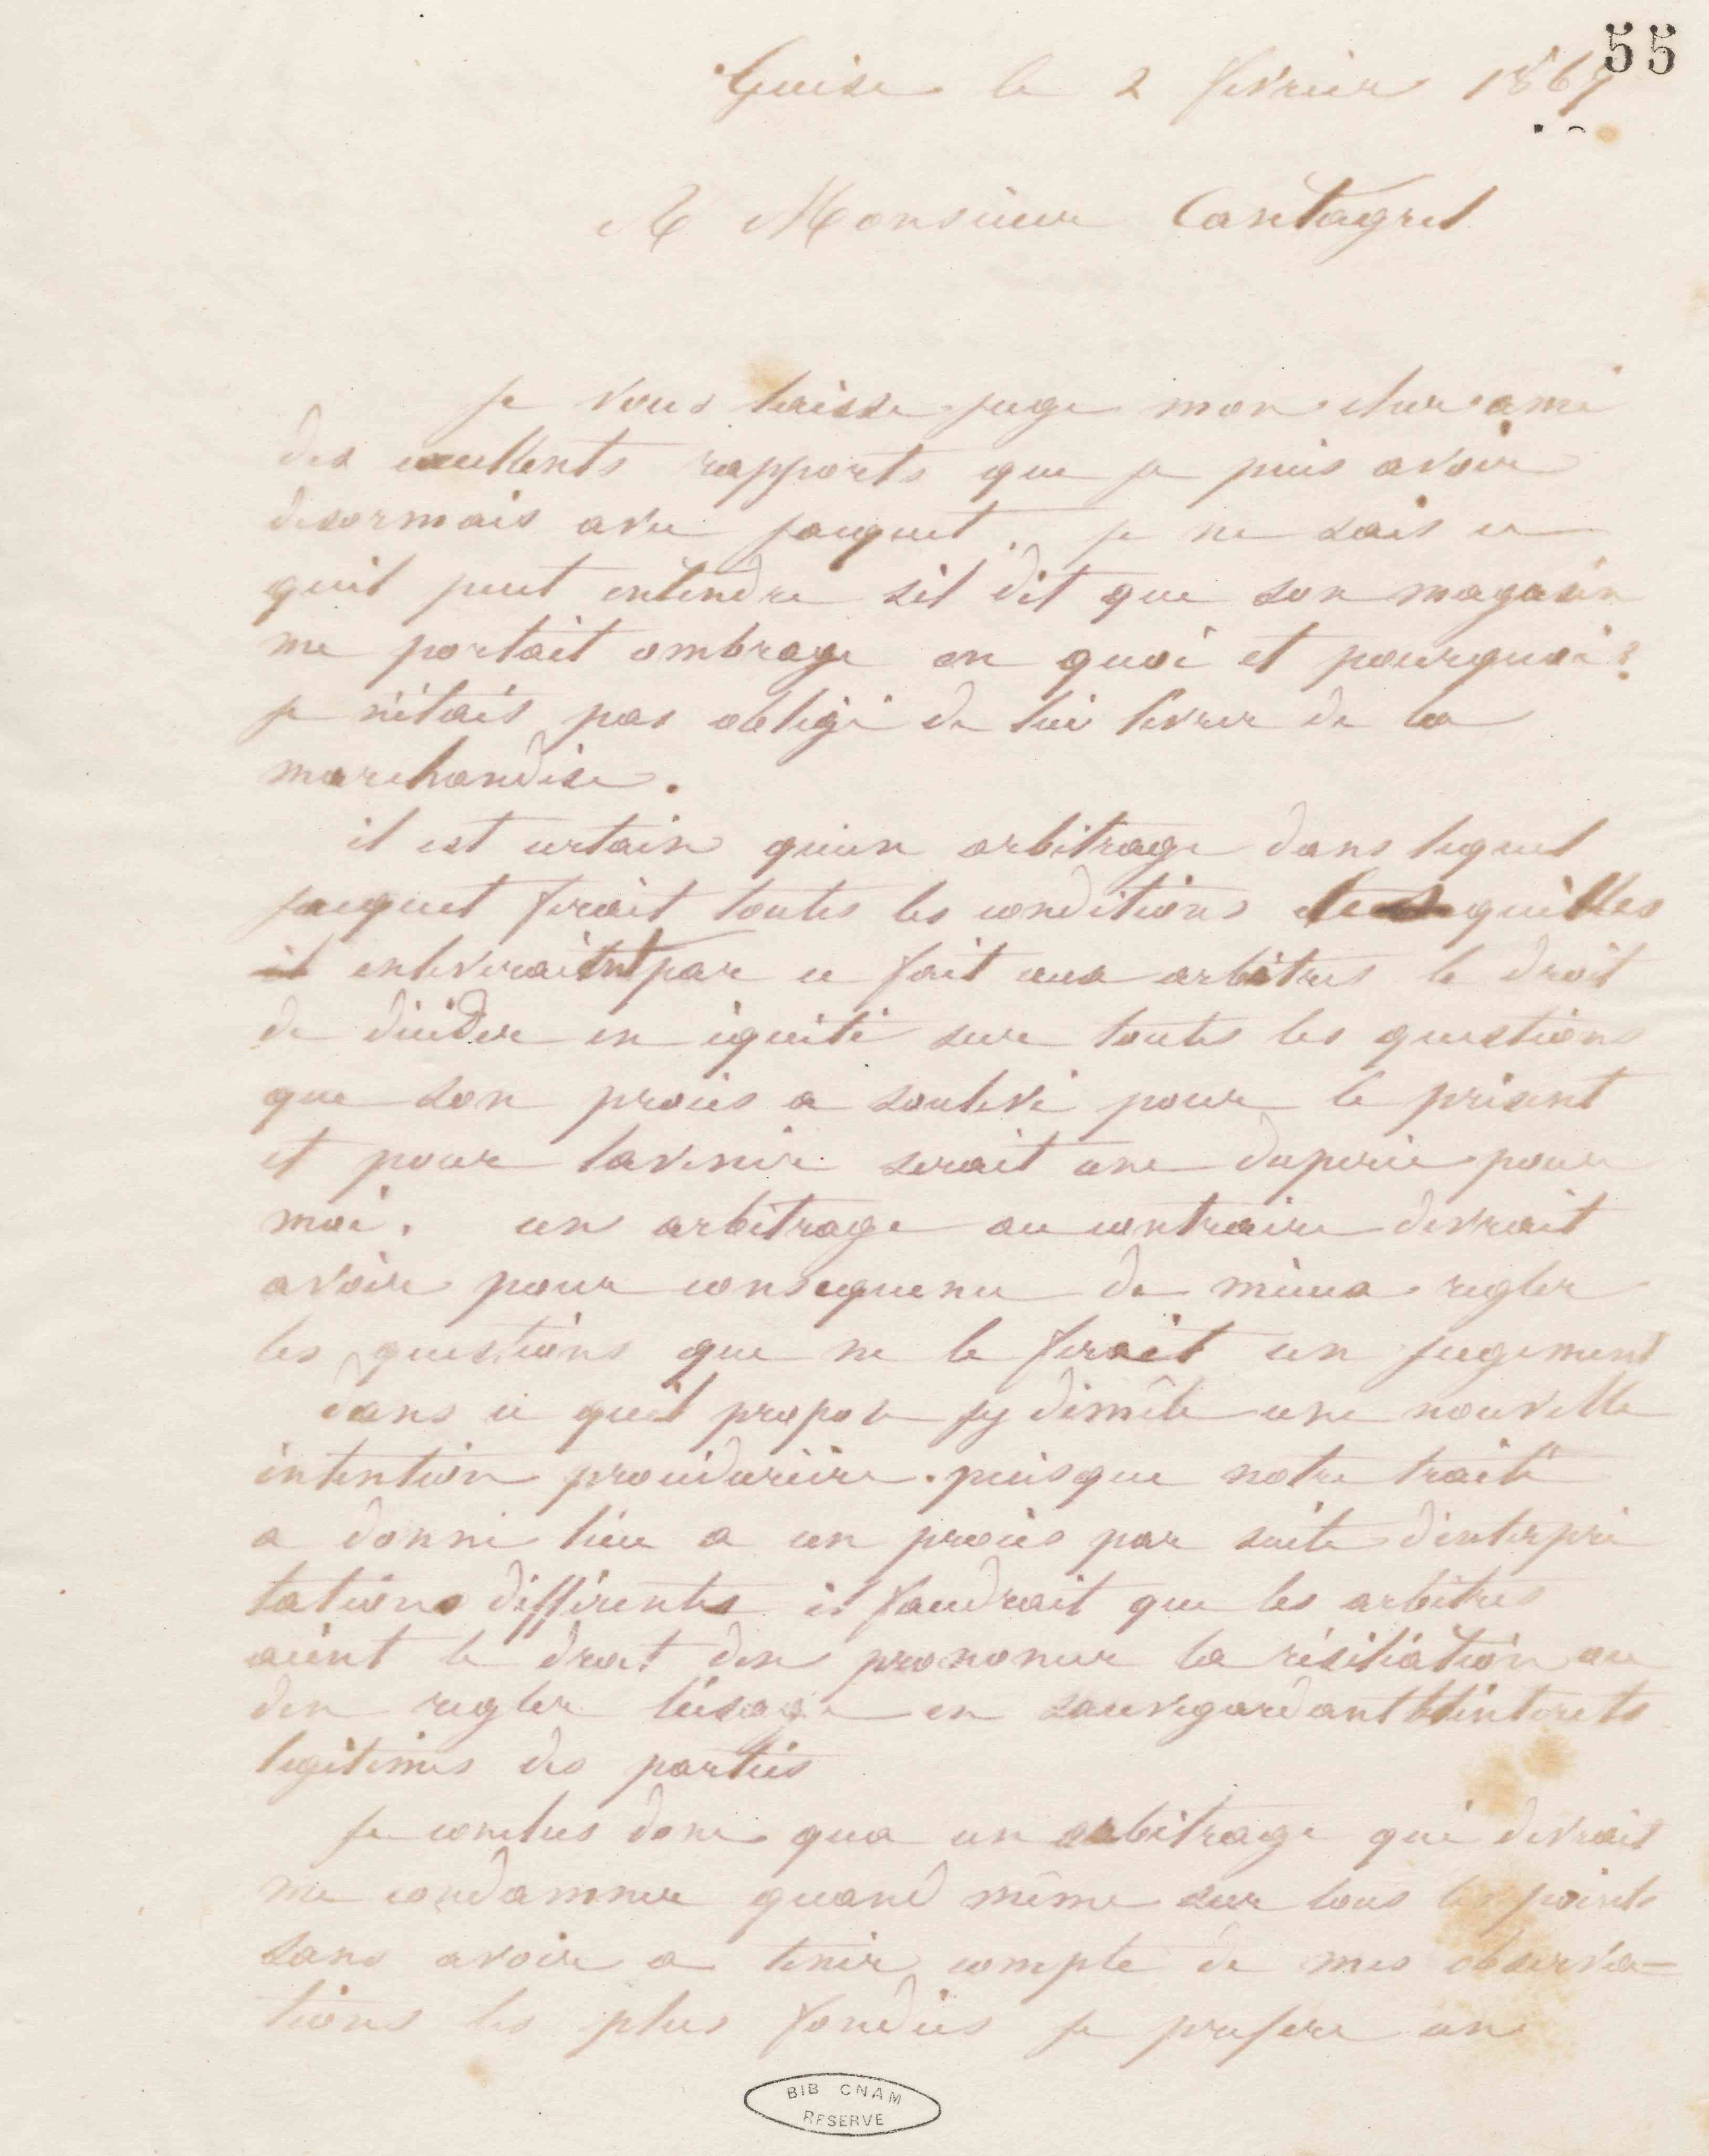 55
Guise le 2 février 1867
A Monsieur Cantagrel
je vous laisse juge mon cher ami
des excellents rapports que je puis avoir
desormais avec jacquet. je ne sais ce
quil peut entendre sil dit que son magasin
me portait ombrage en quoi et pourquoi ?
je nétais pas obligé de lui livrer de la
marchandise.
il est certain quun arbitrage dans lequel
jacquet ferait toutes les conditions quilles
il enleveraient par ce fait aux arbitres le droit
de décider en équité sur toutes les questions
que son procès a soulevé pour le présent
et pour lavenir serait une duperie pour
moi. un arbitrage au contraire devrait
avoir pour consequence de mieux regler
les questions que ne le ferait un jugement
dans ce quil propose jy démêle une nouvelle
intention procédurière. puisque notre traité
a donné lieu a un procès par suite dinterpré
tations différentes il faudrait que les arbitres
aient le droit den prononcer la résiliation ou
den regler lusage en sauvegardant les interets
legitimes des parties
je conclus donc qua un arbitrage qui devrait
me condamner quand même sur tous les points
sans avoir a tenir compte de mes observa=
tions les plus fondées je prefere un
BIB CNAM
RESERVE